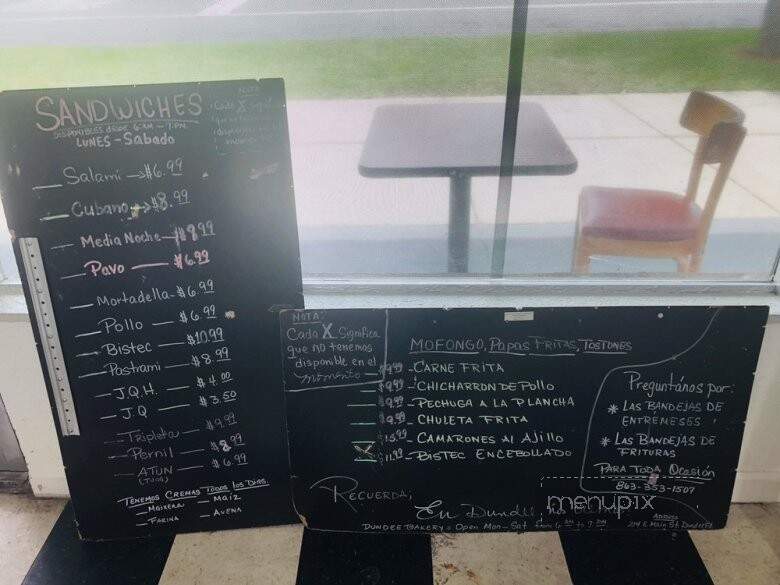 SANDWICHES
DISPONIBLES DESDE 6:AM - 7:PM
LUNES - Sábado
NOTA
Cada X
Salami → $6.99
Cubano → $8.99
Media Noche - $8.99
Pavo - $6.99
Mortadella - $6.99
Pollo - $6.99
Bistec - $10.99
Pastrami - $8.99
J.Q.H. - $4.00
J.Q - $3.50
Tripleta - $9.99
Pernil - $8.99
ATUN - $6.99
(TUNA)
TENEMOS CREMAS TODOS LOS DIAS
- MAIZENA - MAIZ
- FARINA - AVENA
NOTA:
Cada X Significa
que no tenemos
disponible en el
momento
MOFONGO, PAPAS FRITAS, TOSTONES
$9.99 - CARNE FRITA
$9.99 - CHICHARRON DE POLLO
$9.99 - PECHUGA A LA PLANCHA
$9.99 - CHULETA FRITA
- CAMARONES AL AJILLO
X $11.99 - BISTEC ENCEBOLLADO
Preguntános por:
* LAS BANDEJAS DE
ENTREMESES
* LAS BANDEJAS DE
FRITURAS
PARA TODA OCASIÓN
863-353-1507
RECUERDA;
En Dundee
DUNDEE BAKERY Open Mon - Sat from 6 AM to 7 PM
ADDRESS
214 E Main St Dundee Fl
menupix